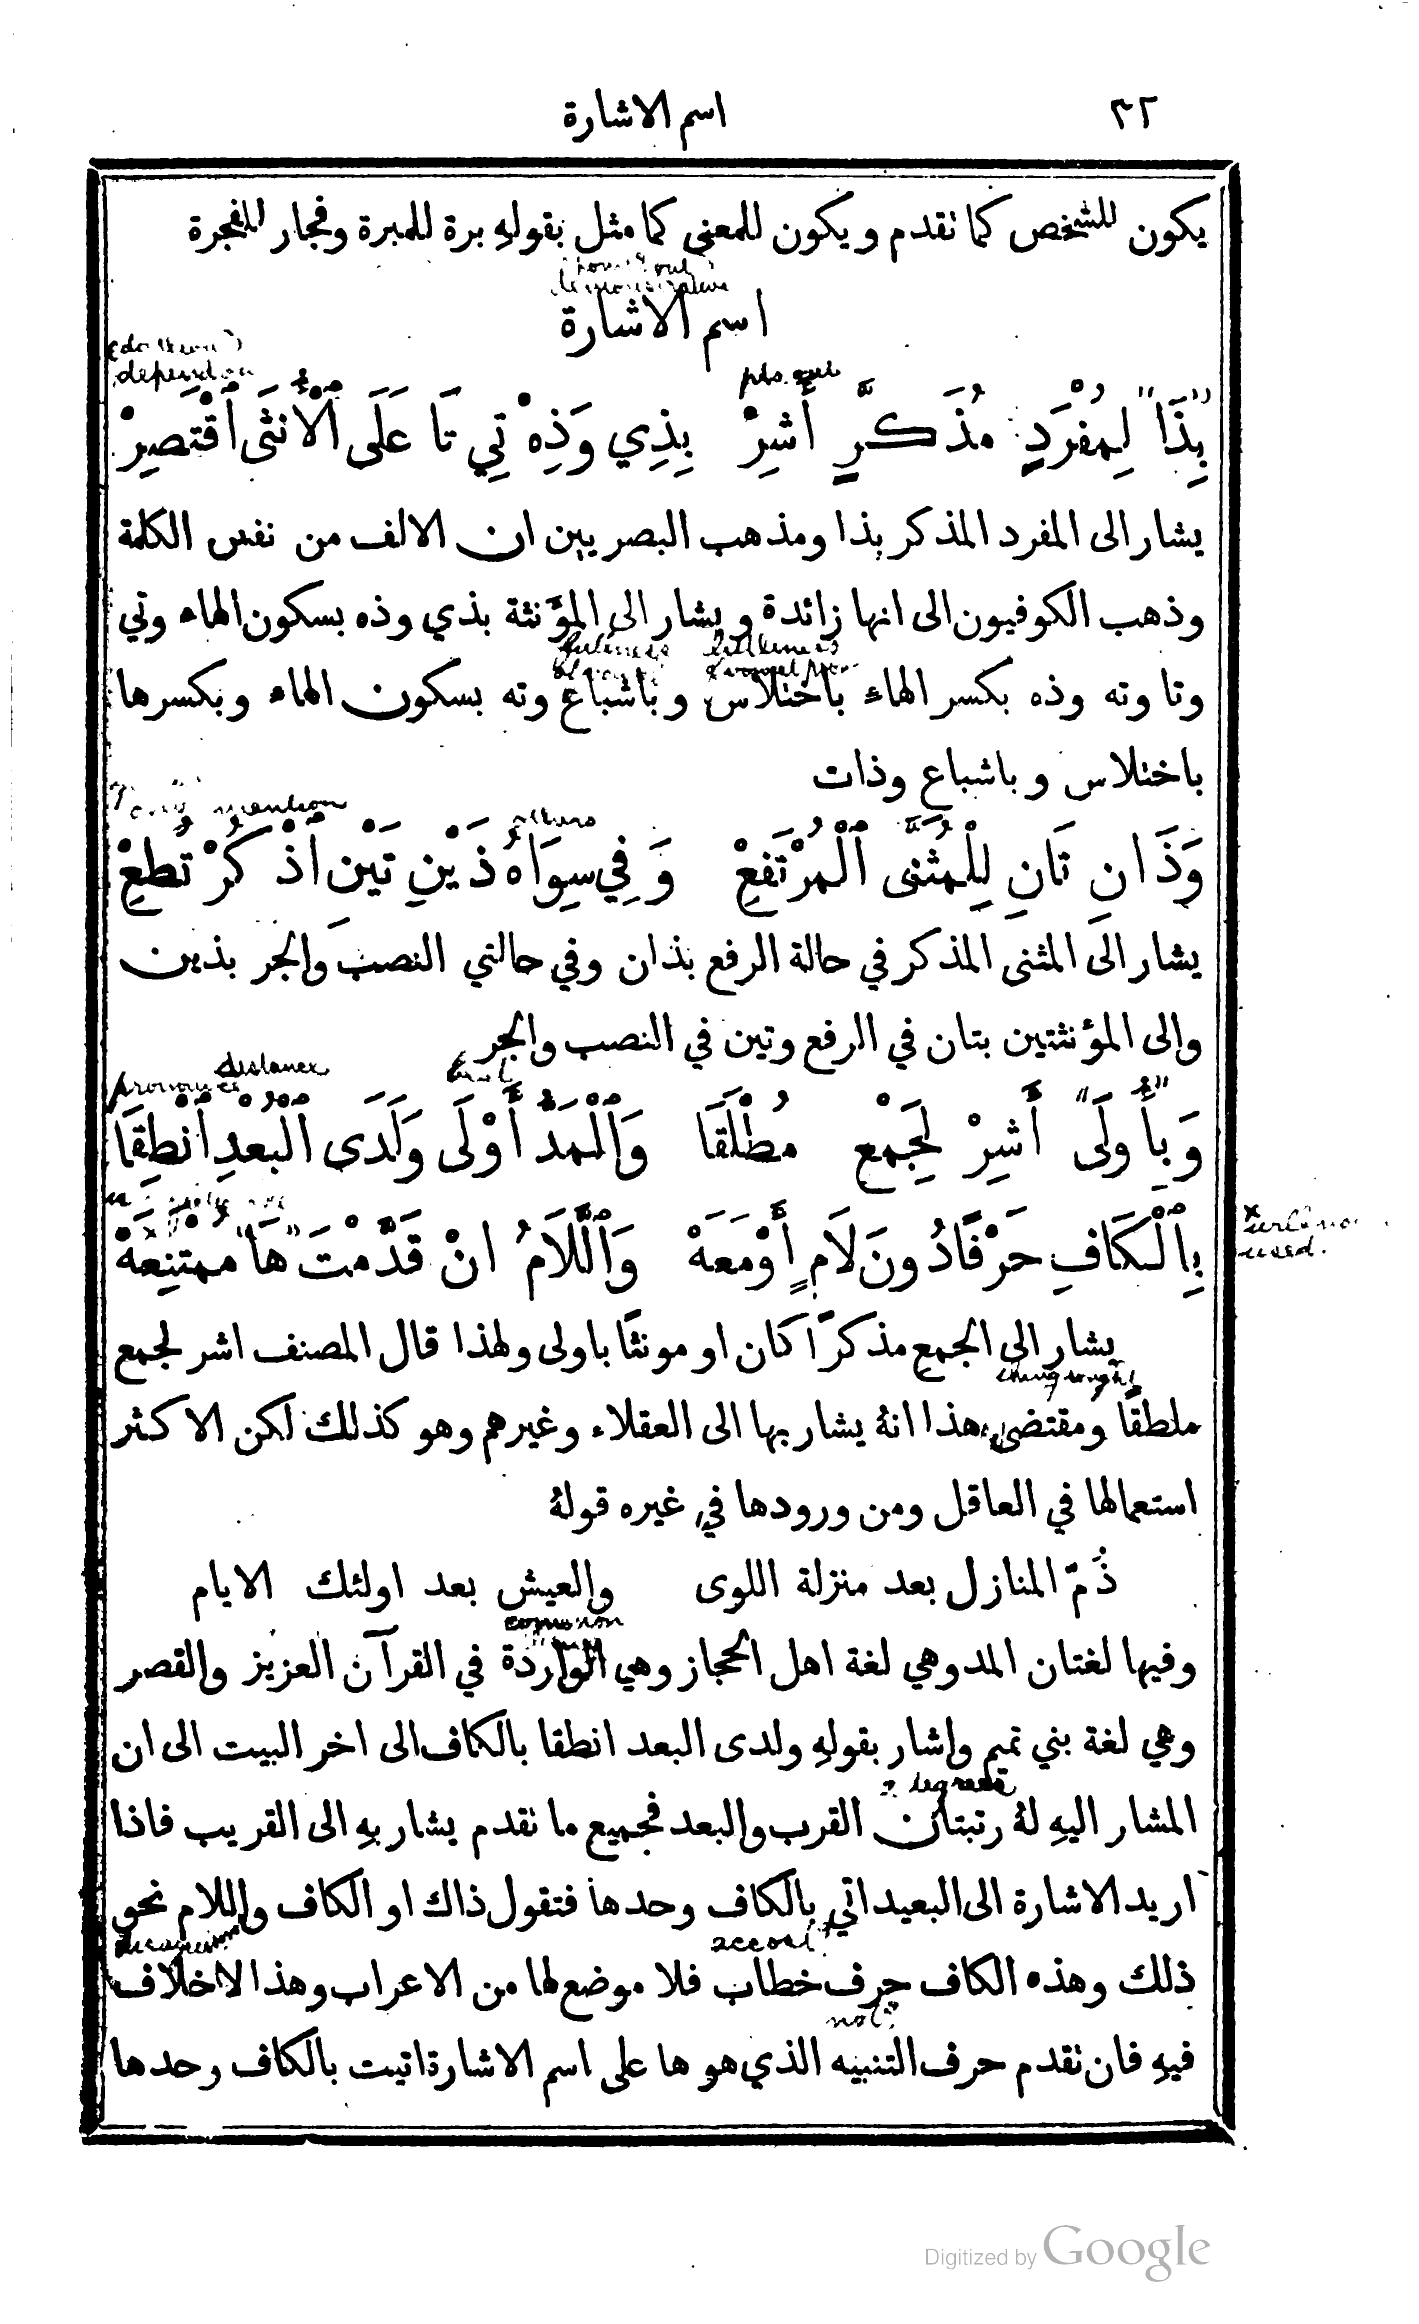 ٣٢ اسم الاشارة
يكون للشخص كما تقدم ويكون للمعنى كما مثل بقولهِ برة للمبرة وفجار للفجرة
demonstrative
اسم الاشارة
depend on
pts. out
بِذَا لِمُفْرَدٍ مُذَكَّرٍ أَشِرْ بِذِي وَذِهْ تِي تَا عَلَى ٱلْأُنْثَى ٱقْتَصِرْ
يشار الى المفرد المذكر بذا ومذهب البصريين ان الالف من نفس الكلمة
وذهب الكوفيون الى انها زائدة ويشار الى المؤَنثة بذي وذه بسكون الهاء وتي
fulness
وتا وته وذه بكسر الهاء باختلاس وباشباع وته بسكون الهاء وبكسرها
باختلاس وباشباع وذات
mention
others
وَذَانِ تَانِ لِلْمُثَنَّى ٱلْمُرْتَفِعْ وَفِي سِوَاهُ ذَيْنِ تَيْنِ ٱذْكُرْ تُطِعْ
يشار الَى المثنى المذكر في حالة الرفع بذان وفي حالتي النصب والجر بذين
والى المؤنثتين بتان في الرفع وتين في النصب والجر
distance
best
pronounce
وَبِأُولَى أَشِرْ لِجَمْعٍ مُطْلَقَا وَٱلْمَدُّ أَوْلَى وَلَدَى ٱلْبُعْدِ ٱنْطِقَا
بِٱلْكَافِ حَرْفًا دُونَ لَامٍ أَوْ مَعَهْ وَٱللَّامُ انْ قَدَّمْتَ هَا مُمْتَنِعَهْ
x
used.
يشار الى الجمع مذكرًا كان او مونثًا باولى ولهذا قال المصنف اشر لجمع
thing sought
ملطقًا ومقتضى هذا انهُ يشار بها الى العقلاء وغيرهم وهو كذلك لكن الاكثر
استعمالها في العاقل ومن ورودها في غيره قولهُ
ذُمَّ المنازل بعد منزلة اللوى والعيش بعد اولئك الايام
common
وفيها لغتان المد وهي لغة اهل الحجاز وهي الواردة في القرآن العزيز والقصر
وهي لغة بني تميم واشار بقولهِ ولدى البعد انطقا بالكاف الى اخر البيت الى ان
2 degrees
المشار اليهِ لهُ رتبتان القرب والبعد فجميع ما تقدم يشار بهِ الى القريب فاذا
اريد الاشارة الى البعيد اتي بالكاف وحدها فتقول ذاك او الكاف واللام نحو
accost
ذلك وهذه الكاف حرف خطاب فلا موضع لها من الاعراب وهذا لاخلاف
فيهِ فان تقدم حرف التنبيه الذي هو ها على اسم الاشارة اتيت بالكاف وحدها
Digitized by Google